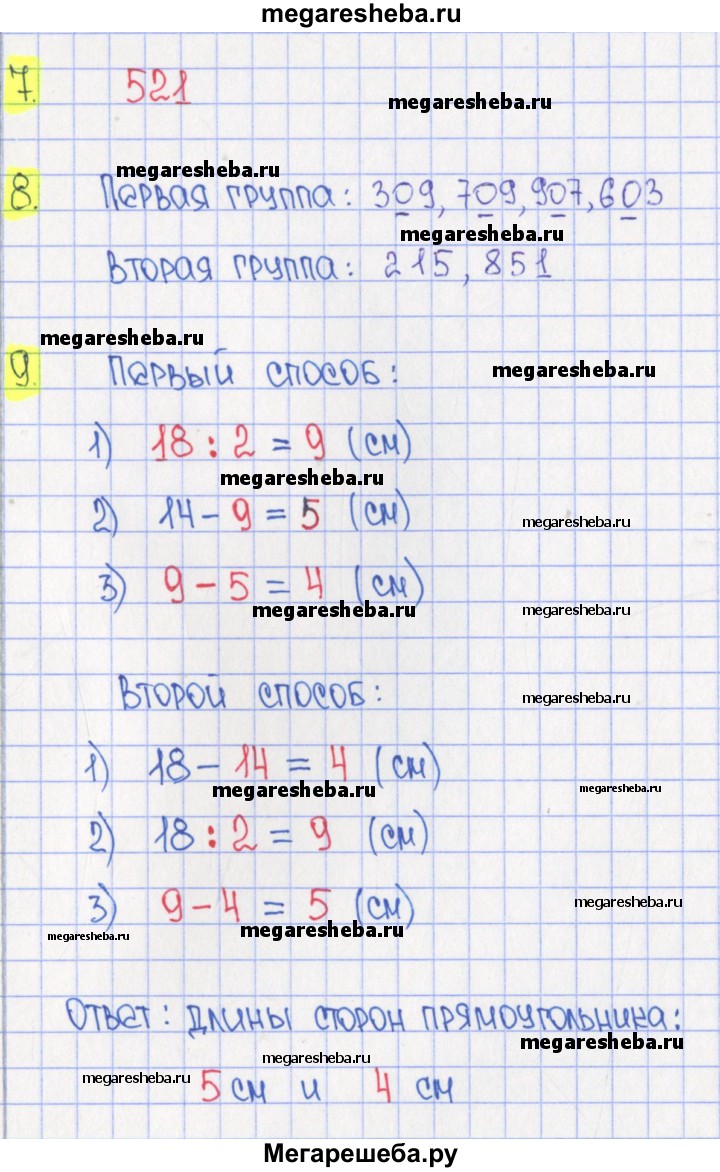 megaresheba.ru
7. 521
megaresheba.ru
megaresheba.ru
8. Первая группа: 309, 709, 907, 603
megaresheba.ru
Вторая группа: 215, 851
megaresheba.ru
9. Первый способ:
megaresheba.ru
1) 18 : 2 = 9 (см)
megaresheba.ru
2) 14 - 9 = 5 (см)
megaresheba.ru
3) 9 - 5 = 4 (см)
megaresheba.ru
megaresheba.ru
Второй способ:
megaresheba.ru
1) 18 - 14 = 4 (см)
megaresheba.ru
megaresheba.ru
2) 18 : 2 = 9 (см)
3) 9 - 4 = 5 (см)
megaresheba.ru
megaresheba.ru
megaresheba.ru
Ответ: длины сторон прямоугольника:
megaresheba.ru
megaresheba.ru
megaresheba.ru
5 см и 4 см
Мегарешеба.ру